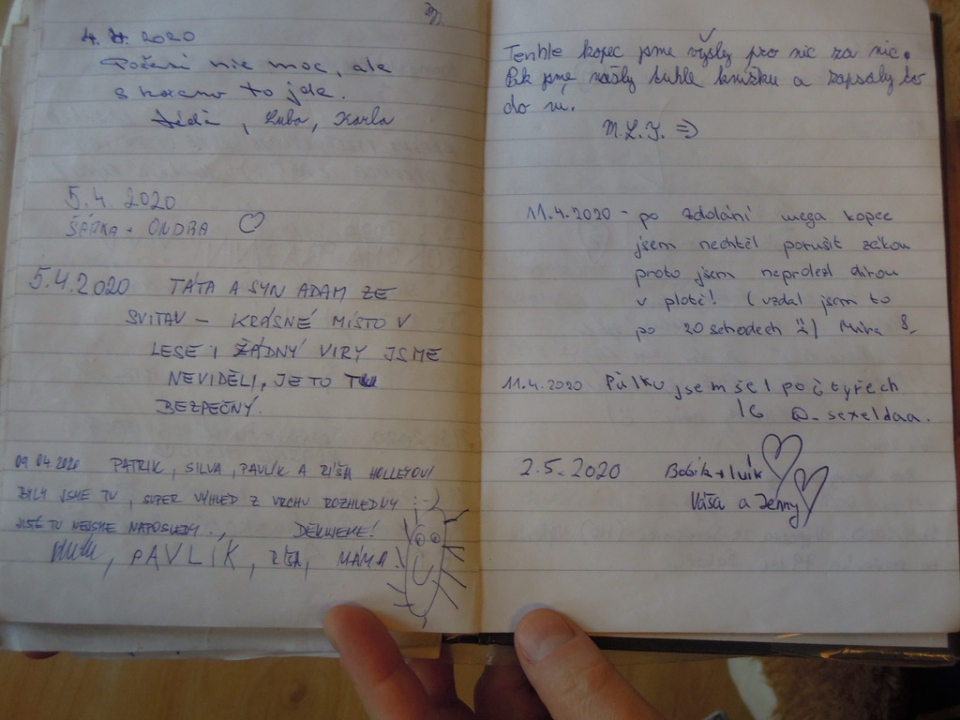 4. 4. 2020
Počasí nic moc, ale
s kocano to jde.
Děda, Luba, Karla
5.4. 2020
ŠÁRKA + ONDRA
5.4.2020 TÁTA A SYN ADAM ZE
SVITAV – KRÁSNÉ MÍSTO V
LESE I ŽÁDNÝ VIRY JSME
NEVIDĚLI, JE TO TU
BEZPEČNÝ.
09.04.2020 PATRIK, SILVA, PAVLÍK A ZÍŠA HOLLEYOVI
BYLI JSME TU, SUPER VÝHLED Z VRCHU ROZHLEDNY :-)
JISTĚ TU NEJSME NAPOSLEDY., DĚKUJEME!
PAVLÍK, ZÍŠA, MÁMA.
Tenhle kopec jsme vyšly pro nic za nic.
Pak jsme našly tuhle knížku a zapsaly se
do ní.
M.L.J. =>
11.4.2020 - po zdolání mega kopce
jsem nechtěl porušit zákon
proto jsem neprolezl dírou
v plotě! (vzdal jsem to
po 20 schodech :)) Míra S.
11.4.2020 Půlku jsem šel po čtyřech
IG @_sexeldaa.
2.5.2020 Bobík + Luík
Váša a Jenny